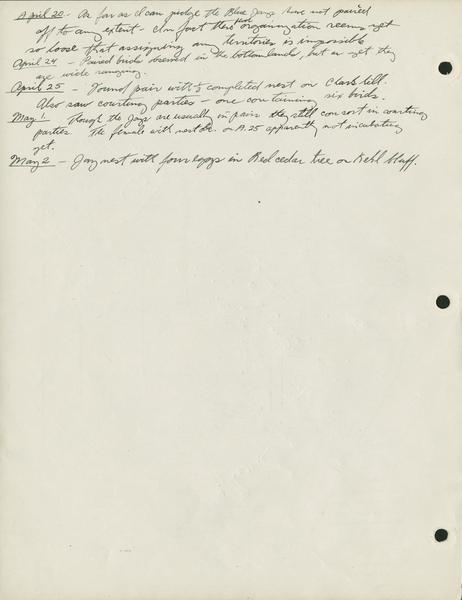 April 20 - As far as I can judge the Blue Jays have not paired
off to any extent - In fact their organization seems yet
so loose that assigning any territories is impossible
April 24 - Paired birds observed in the bottomlands, but as yet they
are wide ranging.
April 25 - Found pair with completed nest on Clark hill.
Also saw courting parties - one containing six birds.
May 1. - Though the Jays are usually in pairs they still consort in courting
parties. The female with nest on A. 25 apparently not incubating
yet.
May 2 - Jay nest with four eggs in Red cedar tree on Kehl bluff.